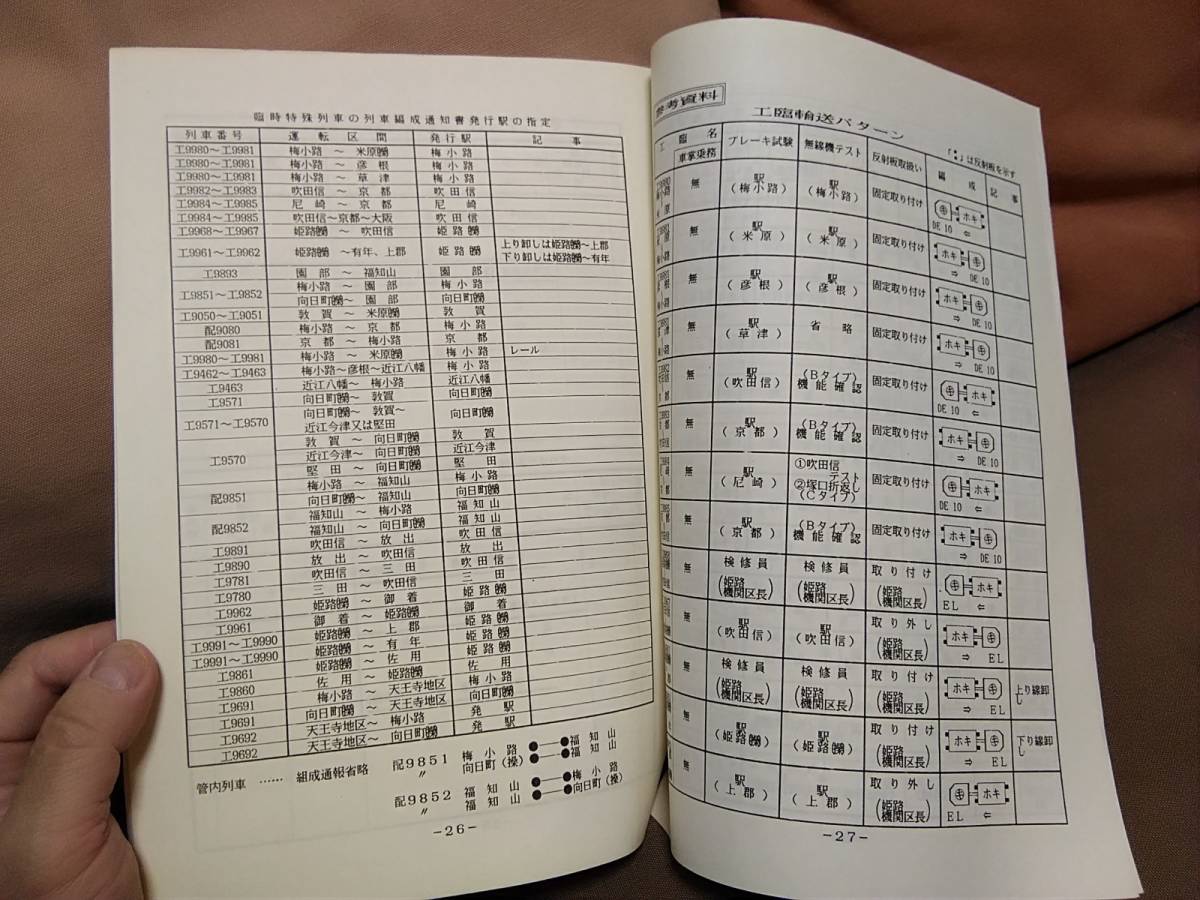 臨時特殊列車の列車編成通知書発行駅の指定
列車番号 運転区間 発行駅 記事
工9980～工9981 梅小路 ～ 米原操 梅小路
工9980～工9981 梅小路 ～ 彦根 梅小路
工9980～工9981 梅小路 ～ 草津 梅小路
工9982～工9983 吹田信 ～ 京都 吹田信
工9984～工9985 尼崎 ～ 京都 尼崎
工9984～工9985 吹田信～京都～大阪 吹田信
工9968～工9967 姫路操 ～ 吹田信 姫路操
工9961～工9962 姫路操 ～有年、上郡 姫路操 上り卸しは姫路操～上郡
下り卸しは姫路操～有年
工9893 園部 ～ 福知山 園部
工9851～工9852 梅小路 ～ 園部 梅小路
向日町操～ 園部 向日町操
工9050～工9051 敦賀 ～ 米原操 敦賀
配9080 梅小路 ～ 京都 梅小路
配9081 京都 ～ 梅小路 京都
工9980～工9981 梅小路 ～ 米原操 梅小路 レール
工9462～工9463 梅小路～彦根～近江八幡 梅小路
工9463 近江八幡～ 梅小路 近江八幡
工9571 向日町操～ 敦賀 向日町操
工9571～工9570 向日町操～ 敦賀～ 向日町操
近江今津又は堅田
工9570 敦賀 ～ 向日町操 敦賀
近江今津～ 向日町操 近江今津
堅田 ～ 向日町操 堅田
配9851 梅小路 ～ 福知山 梅小路
向日町操～ 福知山 向日町操
配9852 福知山 ～ 梅小路 福知山
福知山 ～ 向日町操 福知山
工9891 吹田信 ～ 放出 吹田信
工9890 放出 ～ 吹田信 放出
工9781 吹田信 ～ 三田 吹田信
工9780 三田 ～ 吹田信 三田
工9962 姫路操 ～ 御着 姫路操
工9961 御着 ～ 姫路操 御着
工9991～工9990 姫路操 ～ 上郡 姫路操
工9991～工9990 姫路操 ～ 有年 姫路操
工9861 姫路操 ～ 佐用 姫路操
工9860 佐用 ～ 姫路操 佐用
工9691 梅小路 ～ 天王寺地区 梅小路
工9691 向日町操 ～ 天王寺地区 向日町操
工9692 天王寺地区～ 梅小路 発駅
工9692 天王寺地区～ 向日町操 発駅
管内列車 …… 組成通報省略 配9851 梅小路 ●―● 福知山
〃 向日町（操） ●―● 福知山
配9852 福知山 ●―● 梅小路
〃 福知山 ●―● 向日町（操）
-26-
参考資料
工臨輸送パターン
「 」は反射板を示す
工臨名 車掌乗務 ブレーキ試験 無線機テスト 反射板取扱い 編成 記事
無 駅（梅小路） 駅（梅小路） 固定取り付け ホキ DE10 ⇐
無 駅（米原） 駅（米原） 固定取り付け ホキ ⇒ DE10
無 駅（彦根） 駅（彦根） 固定取り付け ホキ ⇒ DE10
無 駅（草津） 省略 固定取り付け ホキ ⇒ DE10
無 駅（吹田信） （Bタイプ）機能確認 固定取り付け ホキ DE10 ⇐
無 駅（京都） （Bタイプ）機能確認 固定取り付け ホキ ⇒ DE10
無 駅（尼崎） ①吹田信テスト ②塚口折返し（Cタイプ） 固定取り付け ホキ DE10 ⇐
無 駅（京都） （Bタイプ）機能確認 固定取り付け ホキ ⇒ DE10
無 検修員（姫路機関区長） 検修員（姫路機関区長） 取り付け（姫路機関区長） ホキ EL ⇐
無 駅（吹田信） 駅（吹田信） 取り外し（姫路機関区長） ホキ ⇒ EL
無 検修員（姫路機関区長） 検修員（姫路機関区長） 取り付け（姫路機関区長） ホキ ⇒ EL 上り線卸し
無 駅（姫路操） 駅（姫路操） 取り付け（姫路機関区長） ホキ ⇒ EL 下り線卸し
無 駅（上郡） 駅（上郡） 取り外し（姫路機関区長） ホキ EL ⇐
-27-